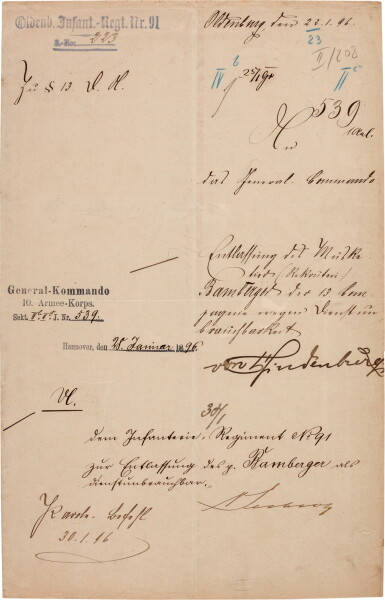 Oldenb. Infant.-Regt. Nr. 91
J.-Nr. 223
Oldenburg den 22.1.96.
23
II/208
IVb
IIc
Zu § 13 D. A.
539
An
das General-Commando
Entlassung des Muske-
tiers (Rekruten)
Bamberger der 13 Com-
pagnie wegen Dienstun-
brauchbarkeit
General-Kommando
10. Armee-Korps.
Sekt. J. Nr. 539.
Hannover, den 28. Januar 1896.
von Hindenburg
30/1
dem Infanterie-Regiment No 91
zur Entlassung des p. Bamberger als
dienstunbrauchbar.
Parole-Befehl
30.1.96